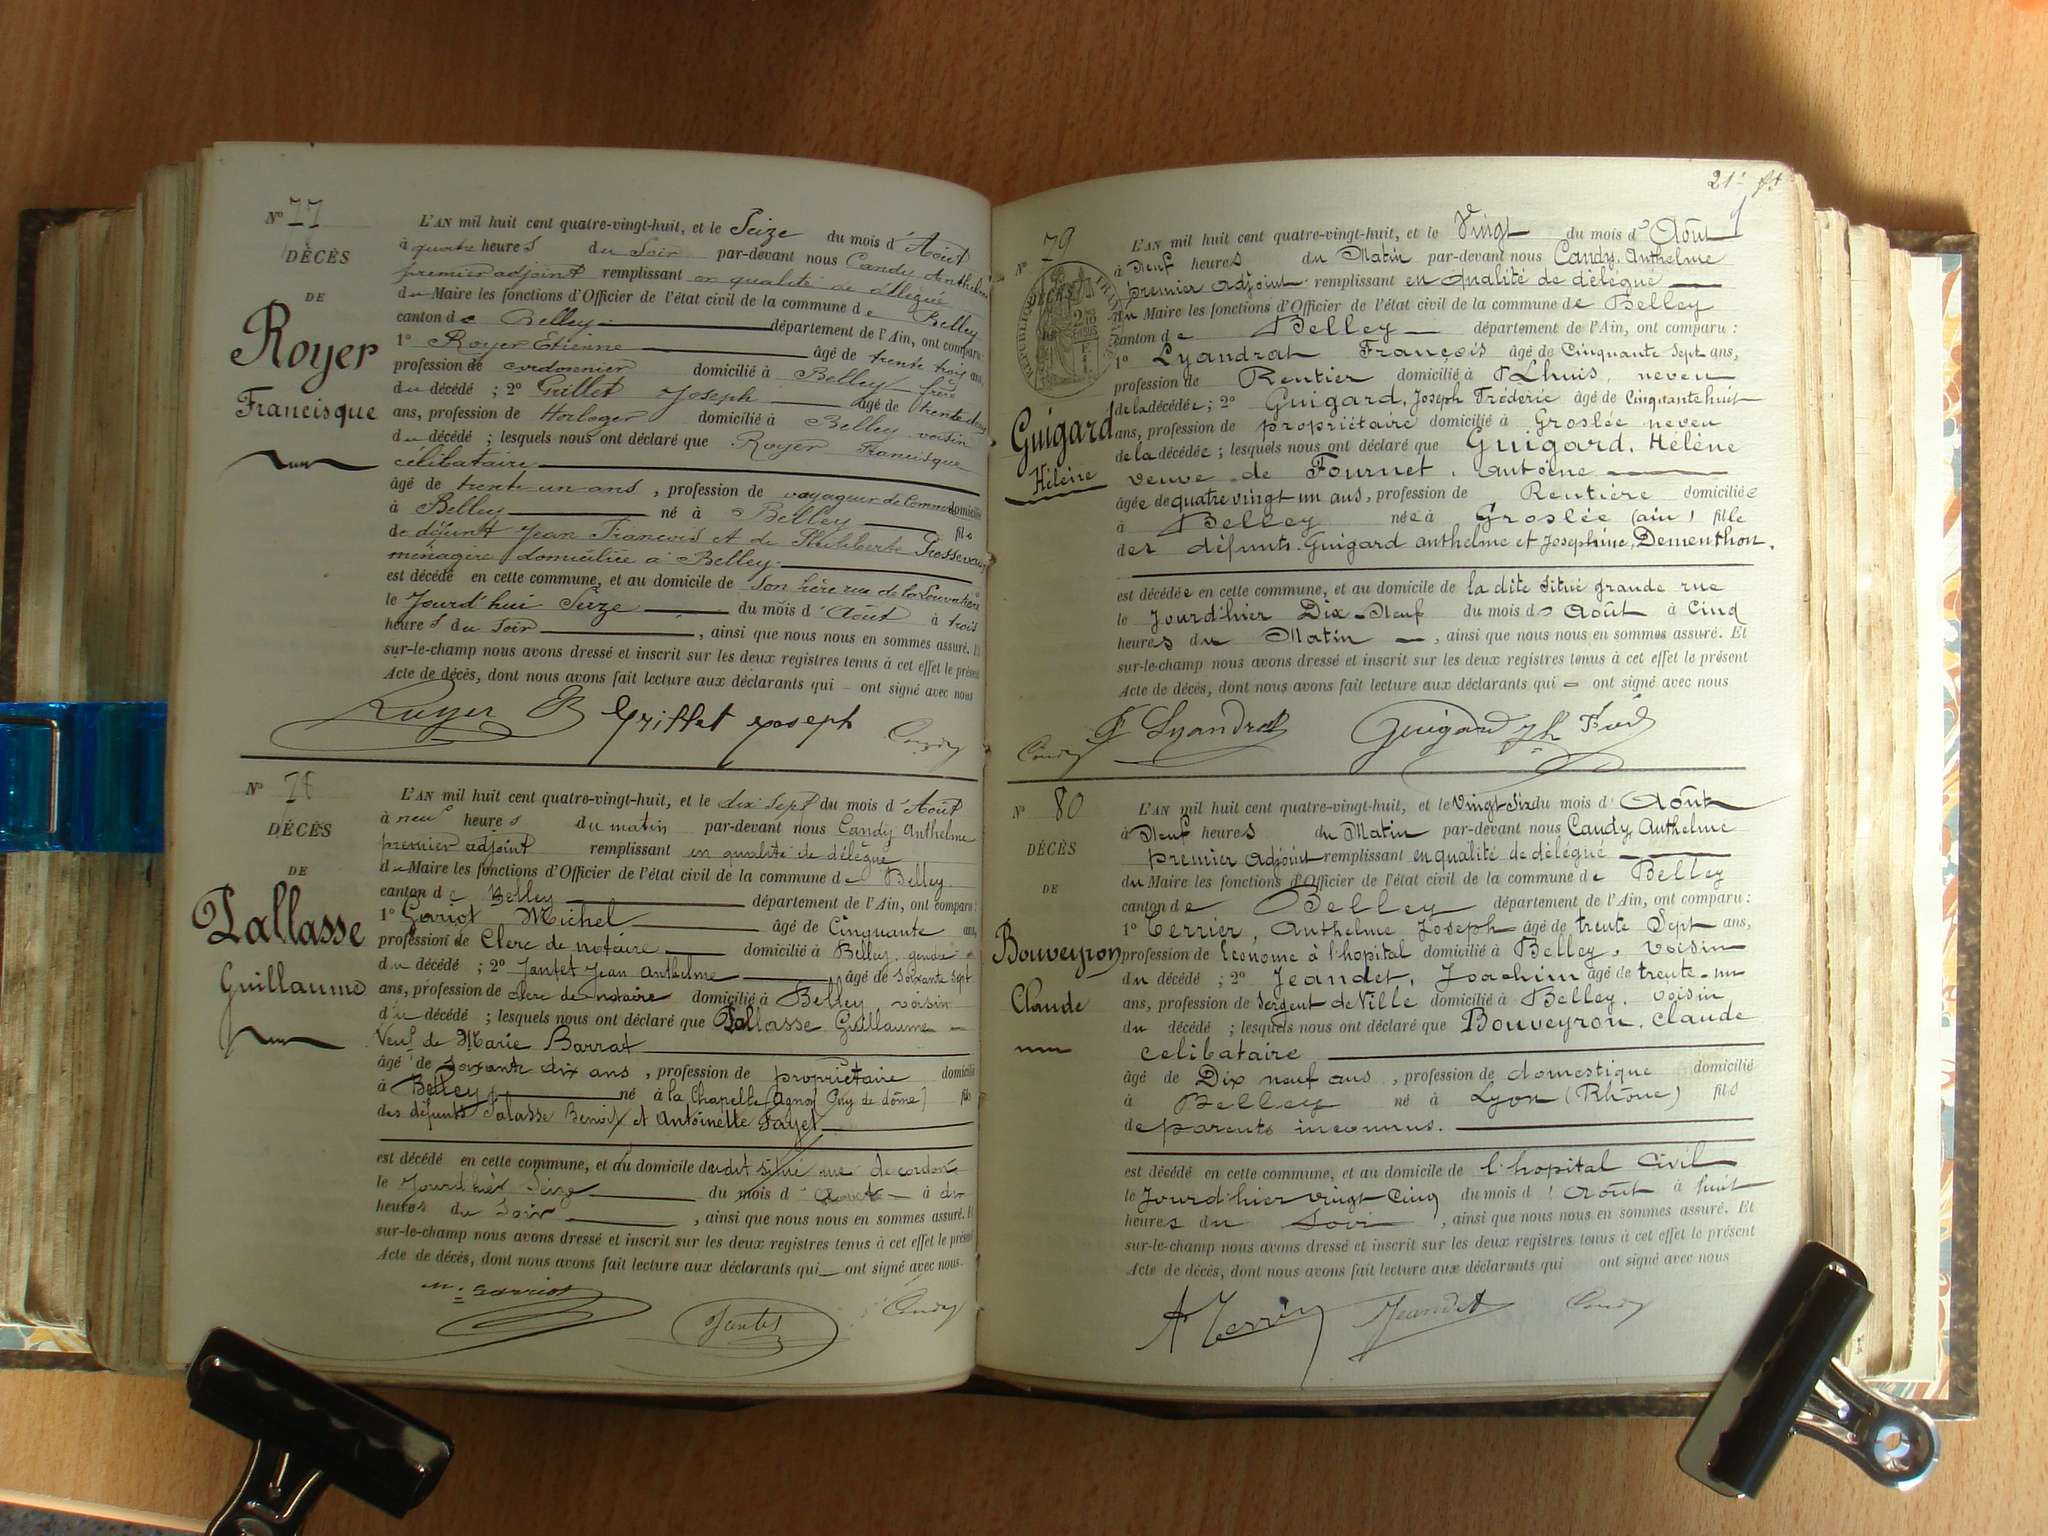 Nº 77
DÉCÈS
DE
Royer
Francisque
L'AN mil huit cent quatre-vingt-huit, et le Seize du mois d'Août
à quatre heures du Soir par-devant nous Candy Anthelme
premier adjoint remplissant en qualité de délégué
du Maire les fonctions d'Officier de l'état civil de la commune de Belley
canton de Belley département de l'Ain, ont comparu:
1º Royer Etienne âgé de trente trois ans,
profession de cordonnier domicilié à Belley frère
du décédé ; 2º Grillet Joseph âgé de trente deux
ans, profession de Horloger domicilié à Belley voisin
du décédé ; lesquels nous ont déclaré que Royer Francisque
célibataire
âgé de trente un ans , profession de voyageur de Commerce domicilié
à Belley né à Belley fils
de défunt Jean Francois et de
ménagère domiciliée à Belley
est décédé en cette commune, et au domicile de son frère rue de la
le Jourd'hui Seize du mois d'Août à trois
heures du Soir , ainsi que nous nous en sommes assuré. Et
sur-le-champ nous avons dressé et inscrit sur les deux registres tenus à cet effet le présent
Acte de décès, dont nous avons fait lecture aux déclarants qui ont signé avec nous
Royer Grillet Joseph Candy
Nº 78
DÉCÈS
DE
Pallasse
Guillaume
L'AN mil huit cent quatre-vingt-huit, et le dix Sept du mois d'Août
à neuf heures du matin par-devant nous Candy Anthelme
premier adjoint remplissant en qualité de délégué
du Maire les fonctions d'Officier de l'état civil de la commune de Belley
canton de Belley département de l'Ain, ont comparu:
1º Gariot Michel âgé de Cinquante ans,
profession de Clerc de notaire domicilié à Belley, gendre
du décédé ; 2º Jantet Jean Anthelme âgé de Soixante sept
ans, profession de clerc de notaire domicilié à Belley voisin
du décédé ; lesquels nous ont déclaré que Pallasse Guillaume
Veuf de Marie Barrat
âgé de soixante dix ans , profession de propriétaire domicilié
à Belley né à la Chapelle Agnon (Puy de dôme) fils
des défunts Palasse Benoit et Antoinette Fayet
est décédé en cette commune, et au domicile dudit situé rue de cordon
le Jourd'hier Seize du mois d'Août à dix
heures du Soir , ainsi que nous nous en sommes assuré. Et
sur-le-champ nous avons dressé et inscrit sur les deux registres tenus à cet effet le présent
Acte de décès, dont nous avons fait lecture aux déclarants qui ont signé avec nous.
M. Garriot Jantet Candy
21e ft
Nº 79
DÉCÈS
Guigard
Hélène
L'AN mil huit cent quatre-vingt-huit, et le Vingt du mois d'Août
à Neuf heures du Matin par-devant nous Candy, Anthelme
premier adjoint remplissant en qualité de délégué
du Maire les fonctions d'Officier de l'état civil de la commune de Belley
canton de Belley département de l'Ain, ont comparu:
1º Lyandrat François âgé de Cinquante Sept ans,
profession de Rentier domicilié à Lhuis, neveu
de la décédée ; 2º Guigard, Joseph Frédéric âgé de Cinquante huit
ans, profession de propriétaire domicilié à Groslée neveu
de la décédée ; lesquels nous ont déclaré que Guigard, Hélène
veuve de Fournet, Antoine
âgée de quatre vingt un ans, profession de Rentière domiciliée
à Belley née à Groslée (ain) fille
des défunts Guigard anthelme et Josephine, Dementhon.
est décédée en cette commune, et au domicile de la dite situé grande rue
le Jourd'hier Dix-Neuf du mois d'Août à Cinq
heures du Matin , ainsi que nous nous en sommes assuré. Et
sur-le-champ nous avons dressé et inscrit sur les deux registres tenus à cet effet le présent
Acte de décès, dont nous avons fait lecture aux déclarants qui ont signé avec nous
Candy F Lyandrat Guigard Jh Fred
Nº 80
DÉCÈS
DE
Bouveyron
Claude
L'AN mil huit cent quatre-vingt-huit, et le Vingt Six du mois d'Août
à Neuf heures du Matin par-devant nous Candy, Anthelme
premier adjoint remplissant en qualité de délégué
du Maire les fonctions d'Officier de l'état civil de la commune de Belley
canton de Belley département de l'Ain, ont comparu:
1º Terrier, Anthelme Joseph âgé de trente Sept ans,
profession de Econome à l'hopital domicilié à Belley, voisin
du décédé ; 2º Jeandet, Joachim âgé de trente-un
ans, profession de Sergent de Ville domicilié à Belley, voisin
du décédé ; lesquels nous ont déclaré que Bouveyron, Claude
celibataire
âgé de Dix neuf ans , profession de domestique domicilié
à Belley né à Lyon (Rhône) fils
de parents inconnus.
est décédé en cette commune, et au domicile de l'hopital Civil
le Jourd'hier vingt Cinq du mois d'Août à huit
heures du Soir , ainsi que nous nous en sommes assuré. Et
sur-le-champ nous avons dressé et inscrit sur les deux registres tenus à cet effet le présent
Acte de décès, dont nous avons fait lecture aux déclarants qui ont signé avec nous
A Terrier Jeandet Candy